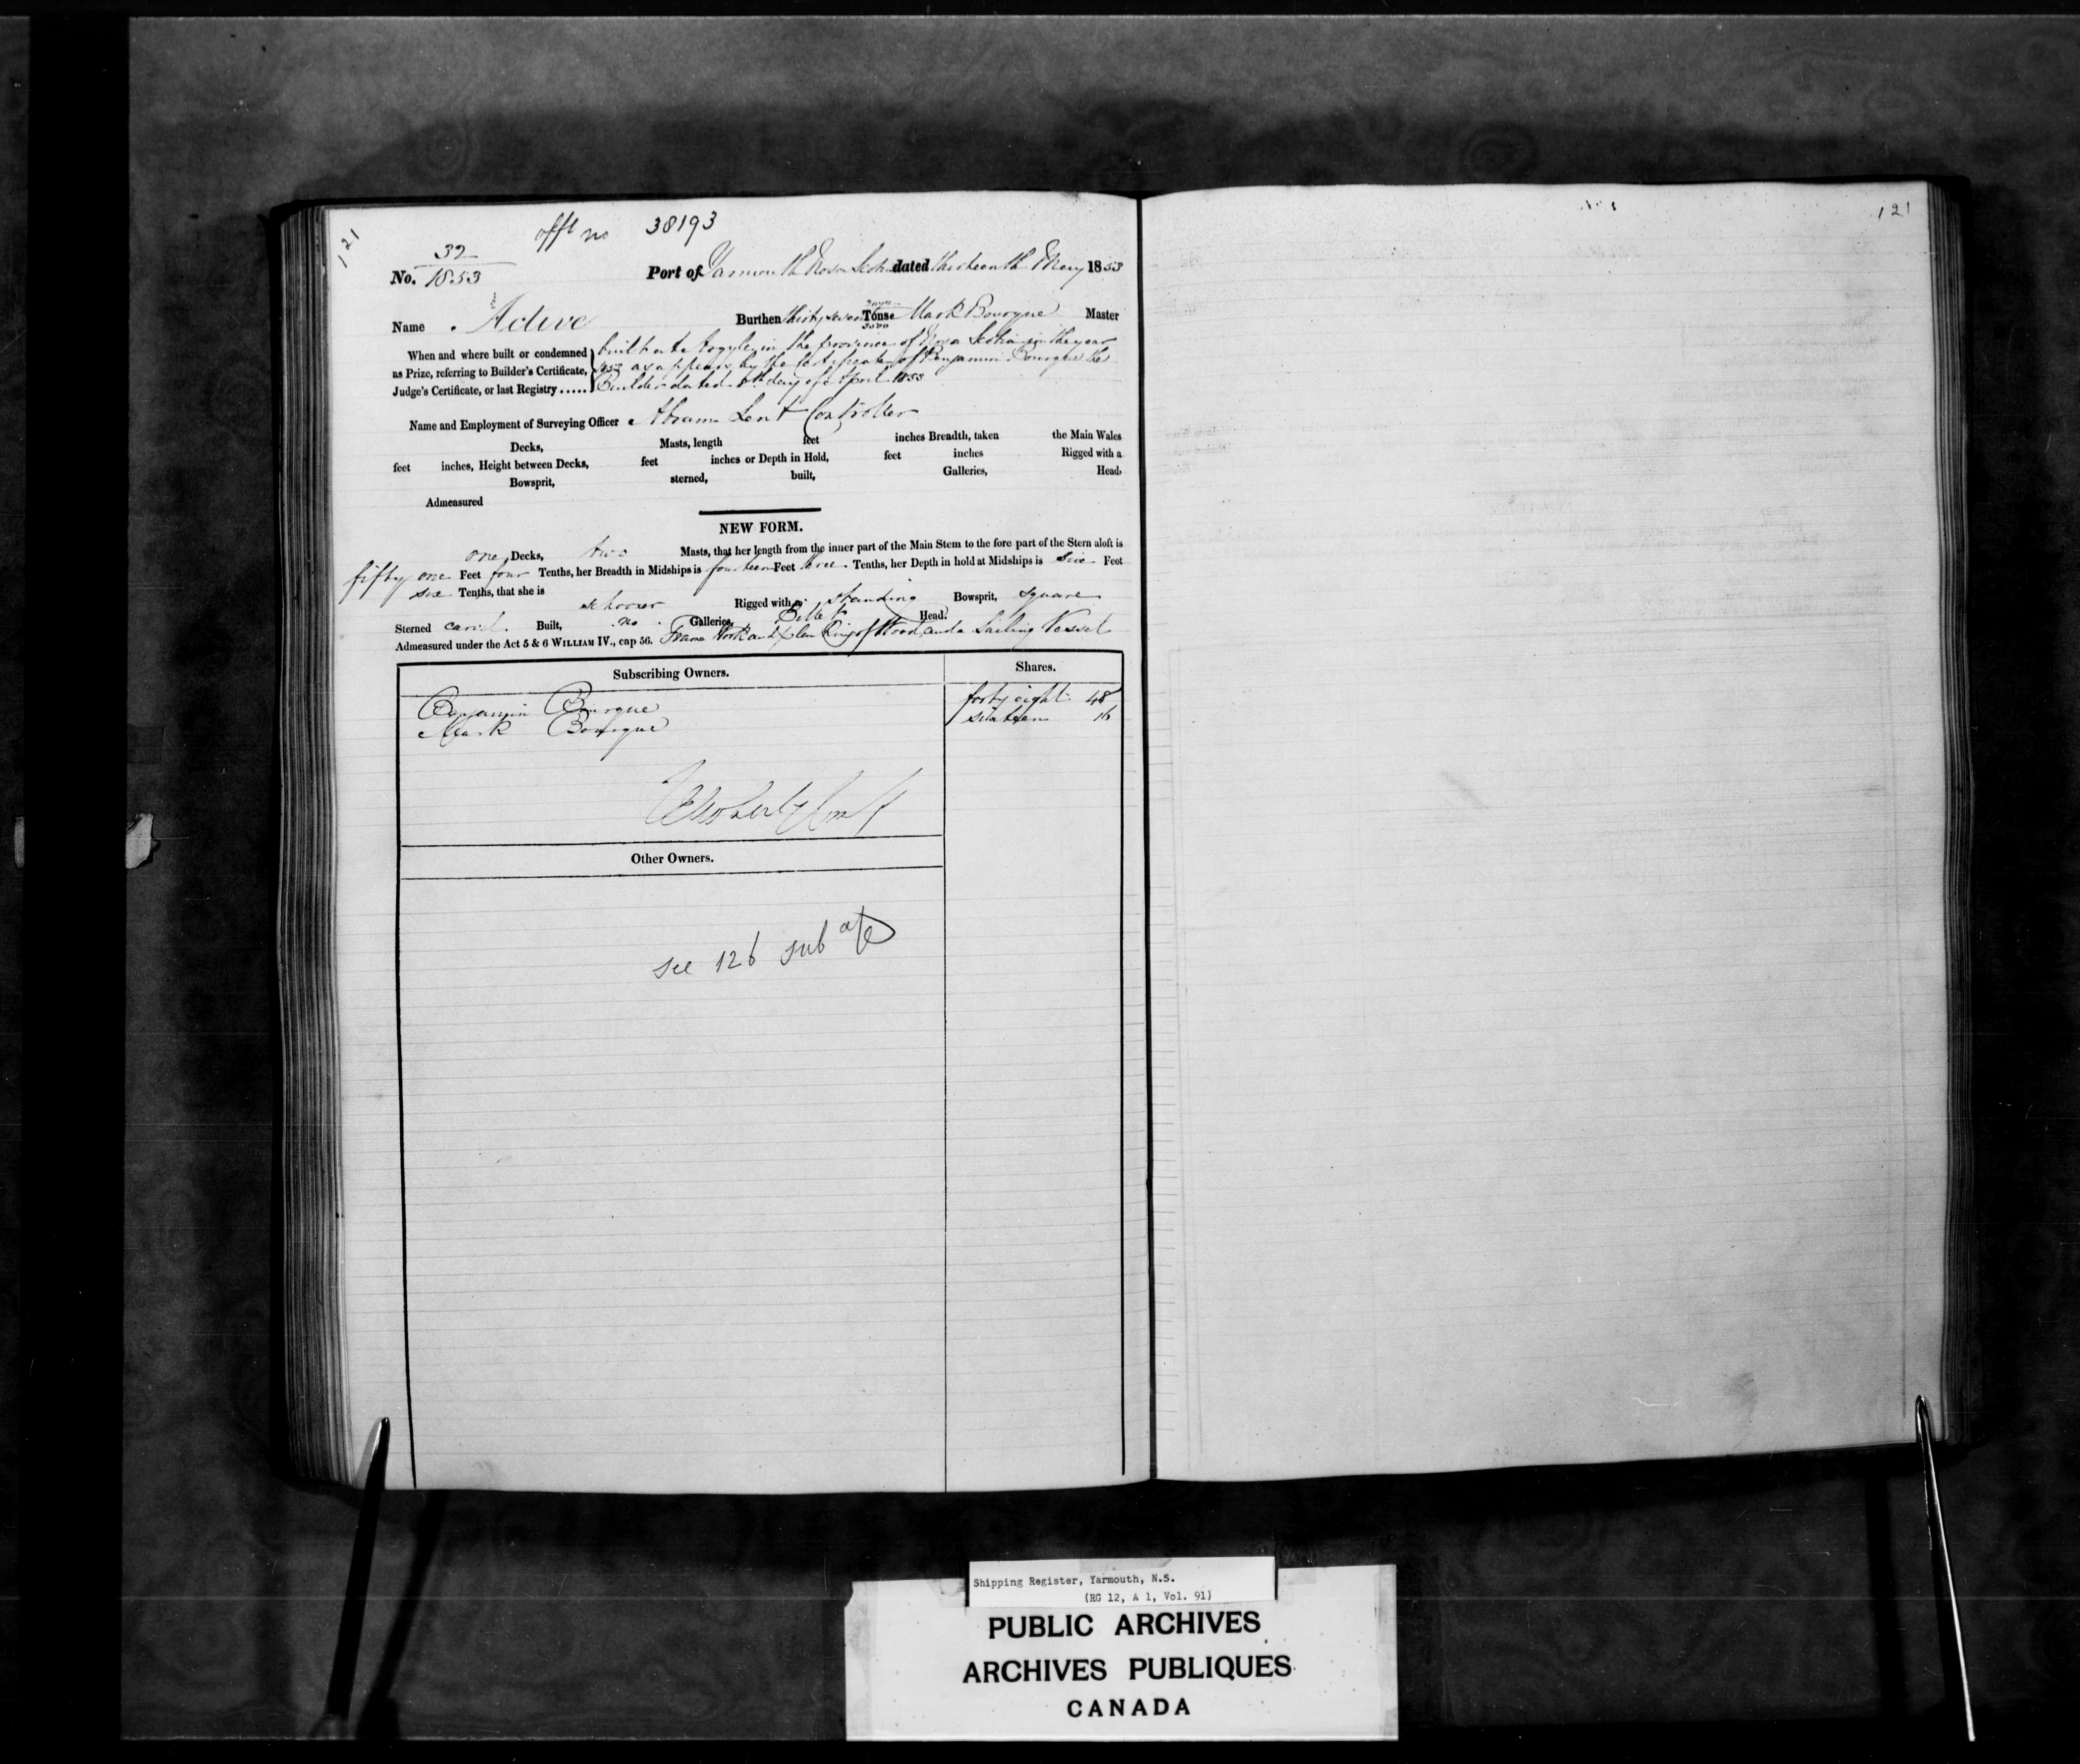 121
offl no 38193
No. 32/1853 Port of Yarmouth Nova Scotia dated thirteenth May 1853
Name Active Burthen thirty seven Tons Mark Bourque Master
When and where built or condemned as Prize, referring to Builder's Certificate, Judge's Certificate, or last Registry ......
built at Argyle in the province of Nova Scotia in the year
1853 as appears by the Certificate of Benjamin Bourque the
Builder dated 8th day of April 1853
Name and Employment of Surveying Officer Abram Lent Controller
Decks, Masts, length feet inches Breadth, taken the Main Wales
feet inches, Height between Decks, feet inches or Depth in Hold, feet inches Rigged with a
Bowsprit, sterned, built, Galleries, Head,
Admeasured
NEW FORM.
one Decks, two Masts, that her length from the inner part of the Main Stem to the fore part of the Stern aloft is
fifty one Feet four Tenths, her Breadth in Midships is fourteen Feet three Tenths, her Depth in hold at Midships is six Feet
six Tenths, that she is schooner Rigged with a standing Bowsprit, square
Sterned carvel Built, no Galleries, Billet Head.
Admeasured under the Act 5 & 6 WILLIAM IV., cap 56. Frame Work and Planking of Wood, and a Sailing Vessel
Subscribing Owners. Shares.
Benjamin Bourque forty eight 48
Mark Bourque sixteen 16
Other Owners.
see 126 sub
121
Shipping Register, Yarmouth, N.S.
(RG 12, A 1, Vol. 91)
PUBLIC ARCHIVES
ARCHIVES PUBLIQUES
CANADA